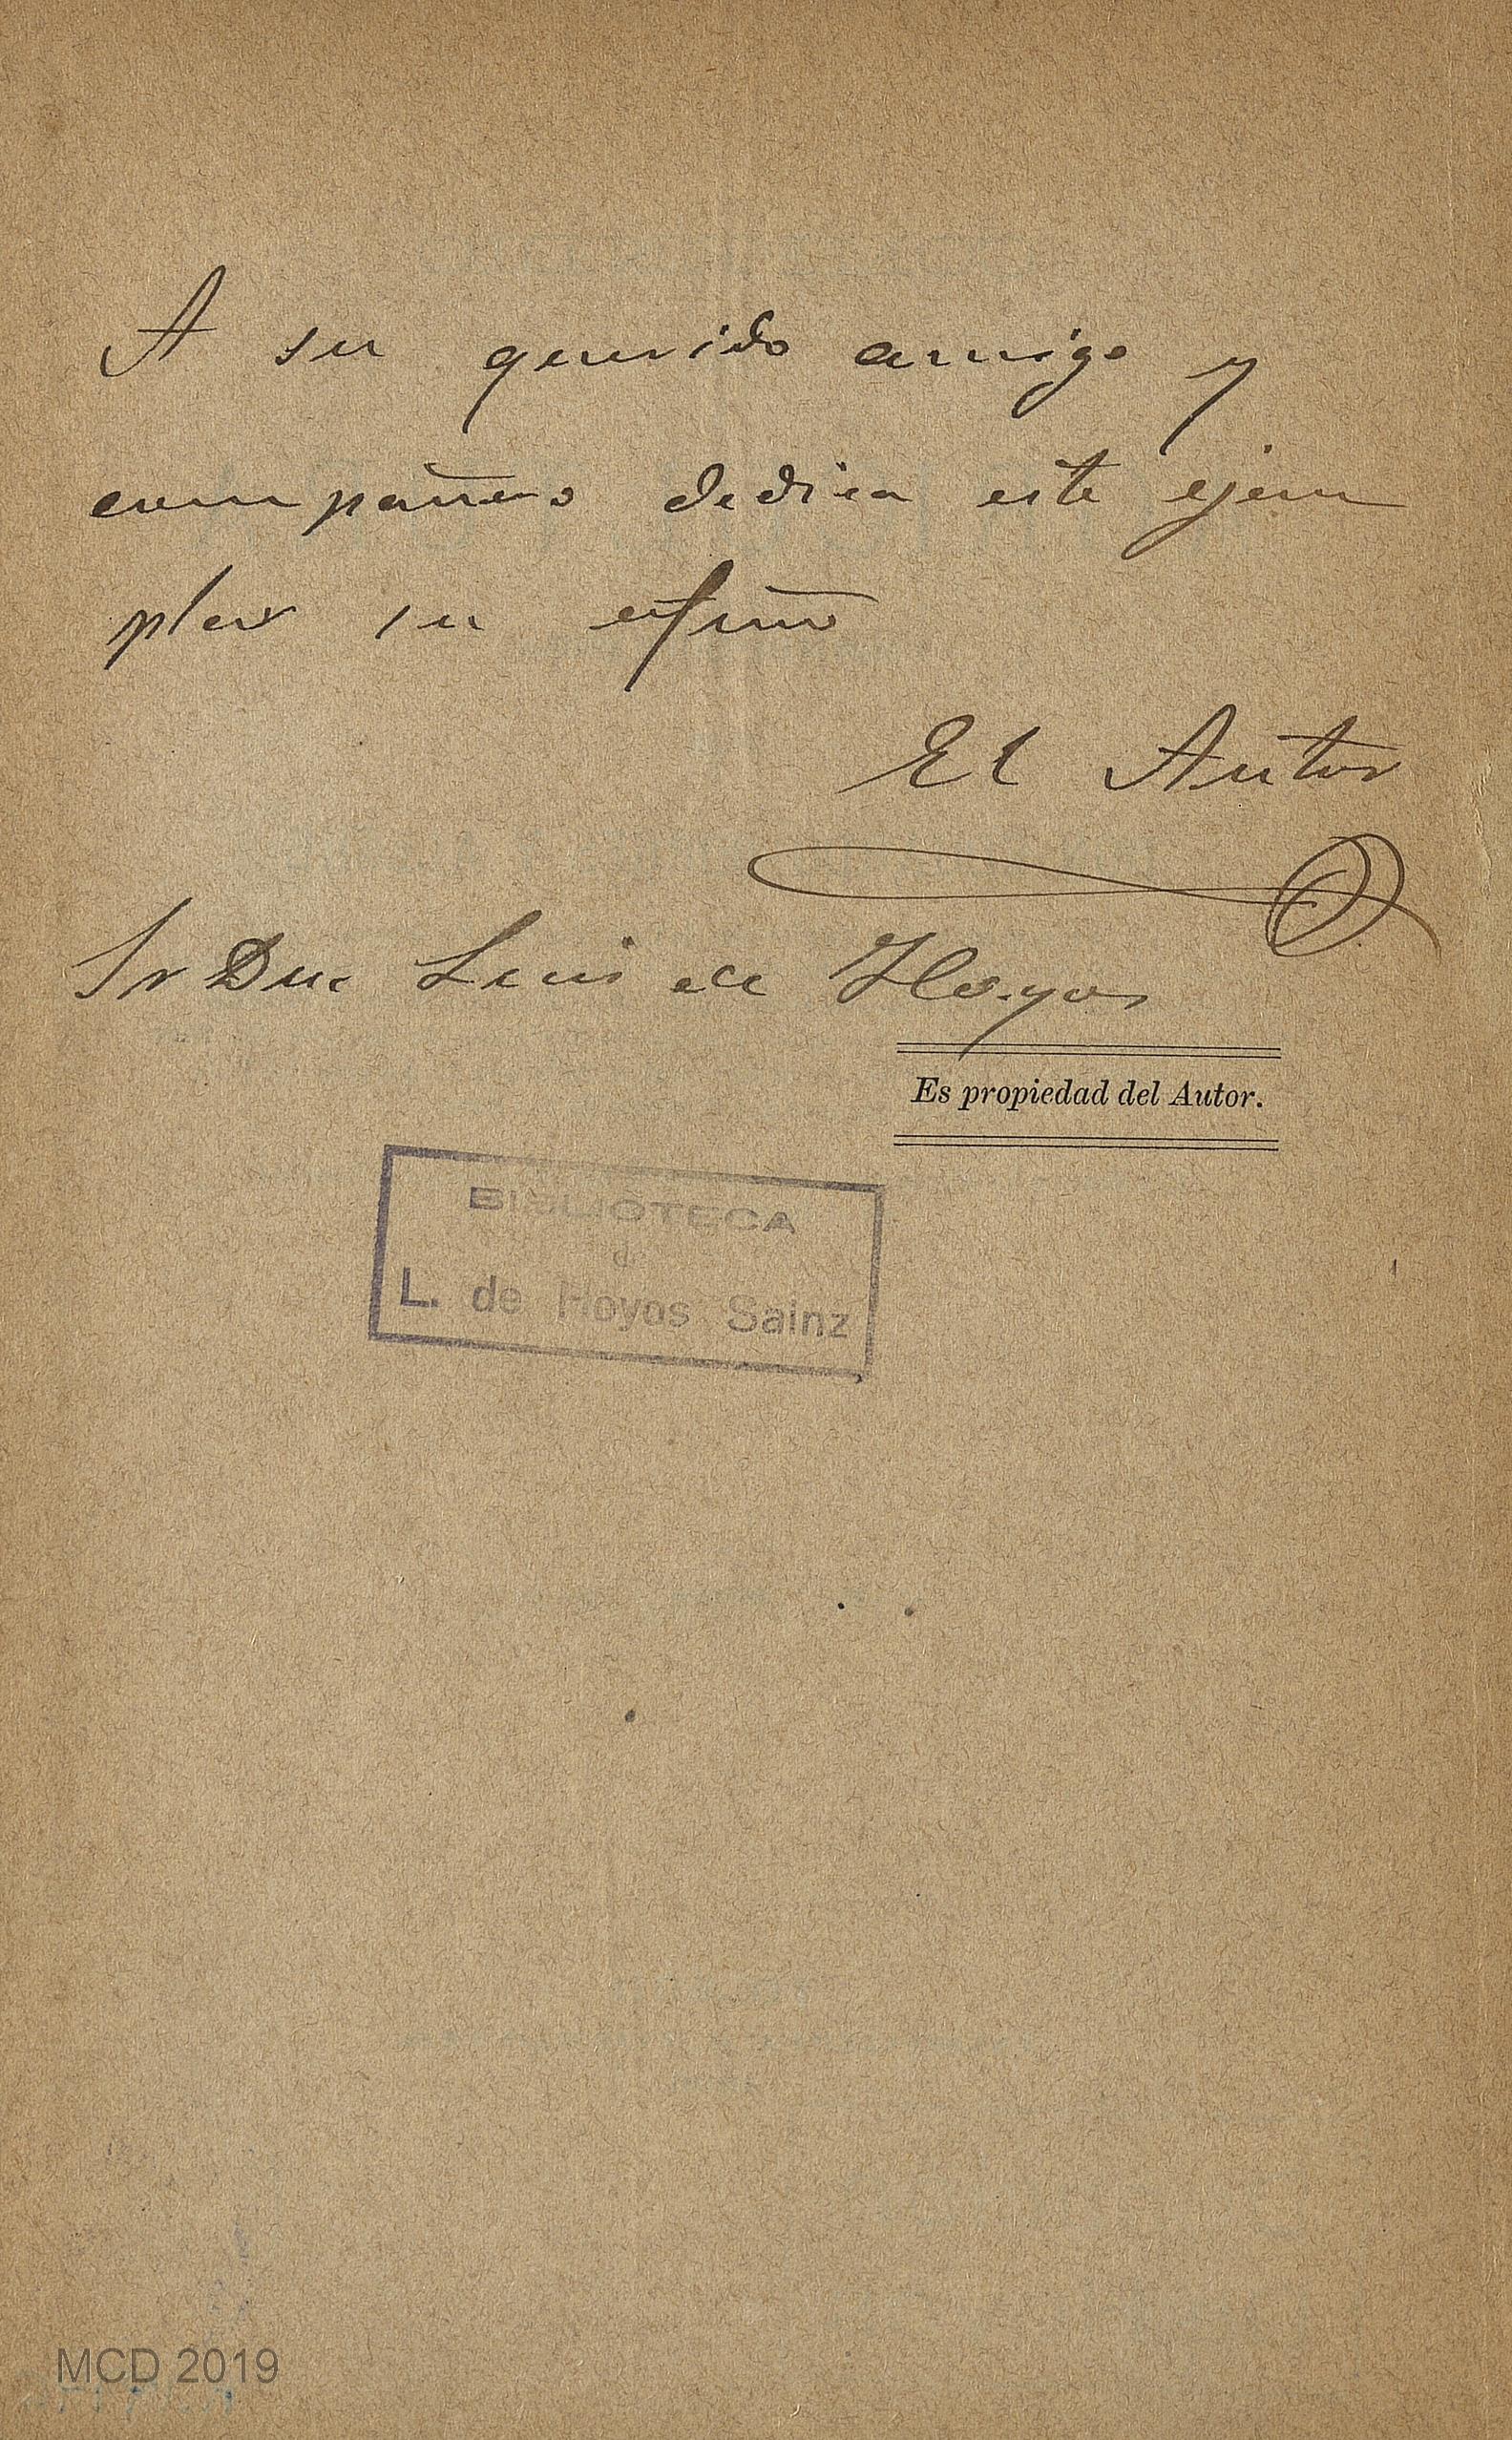 A su querido amigo y
compañero dedica este ejem
plar su afimo
El Autor
Sr Dn Luis de Hoyos
Es propiedad del Autor.
BIBLIOTECA
de
L. de Hoyos Sainz
MCD 2019